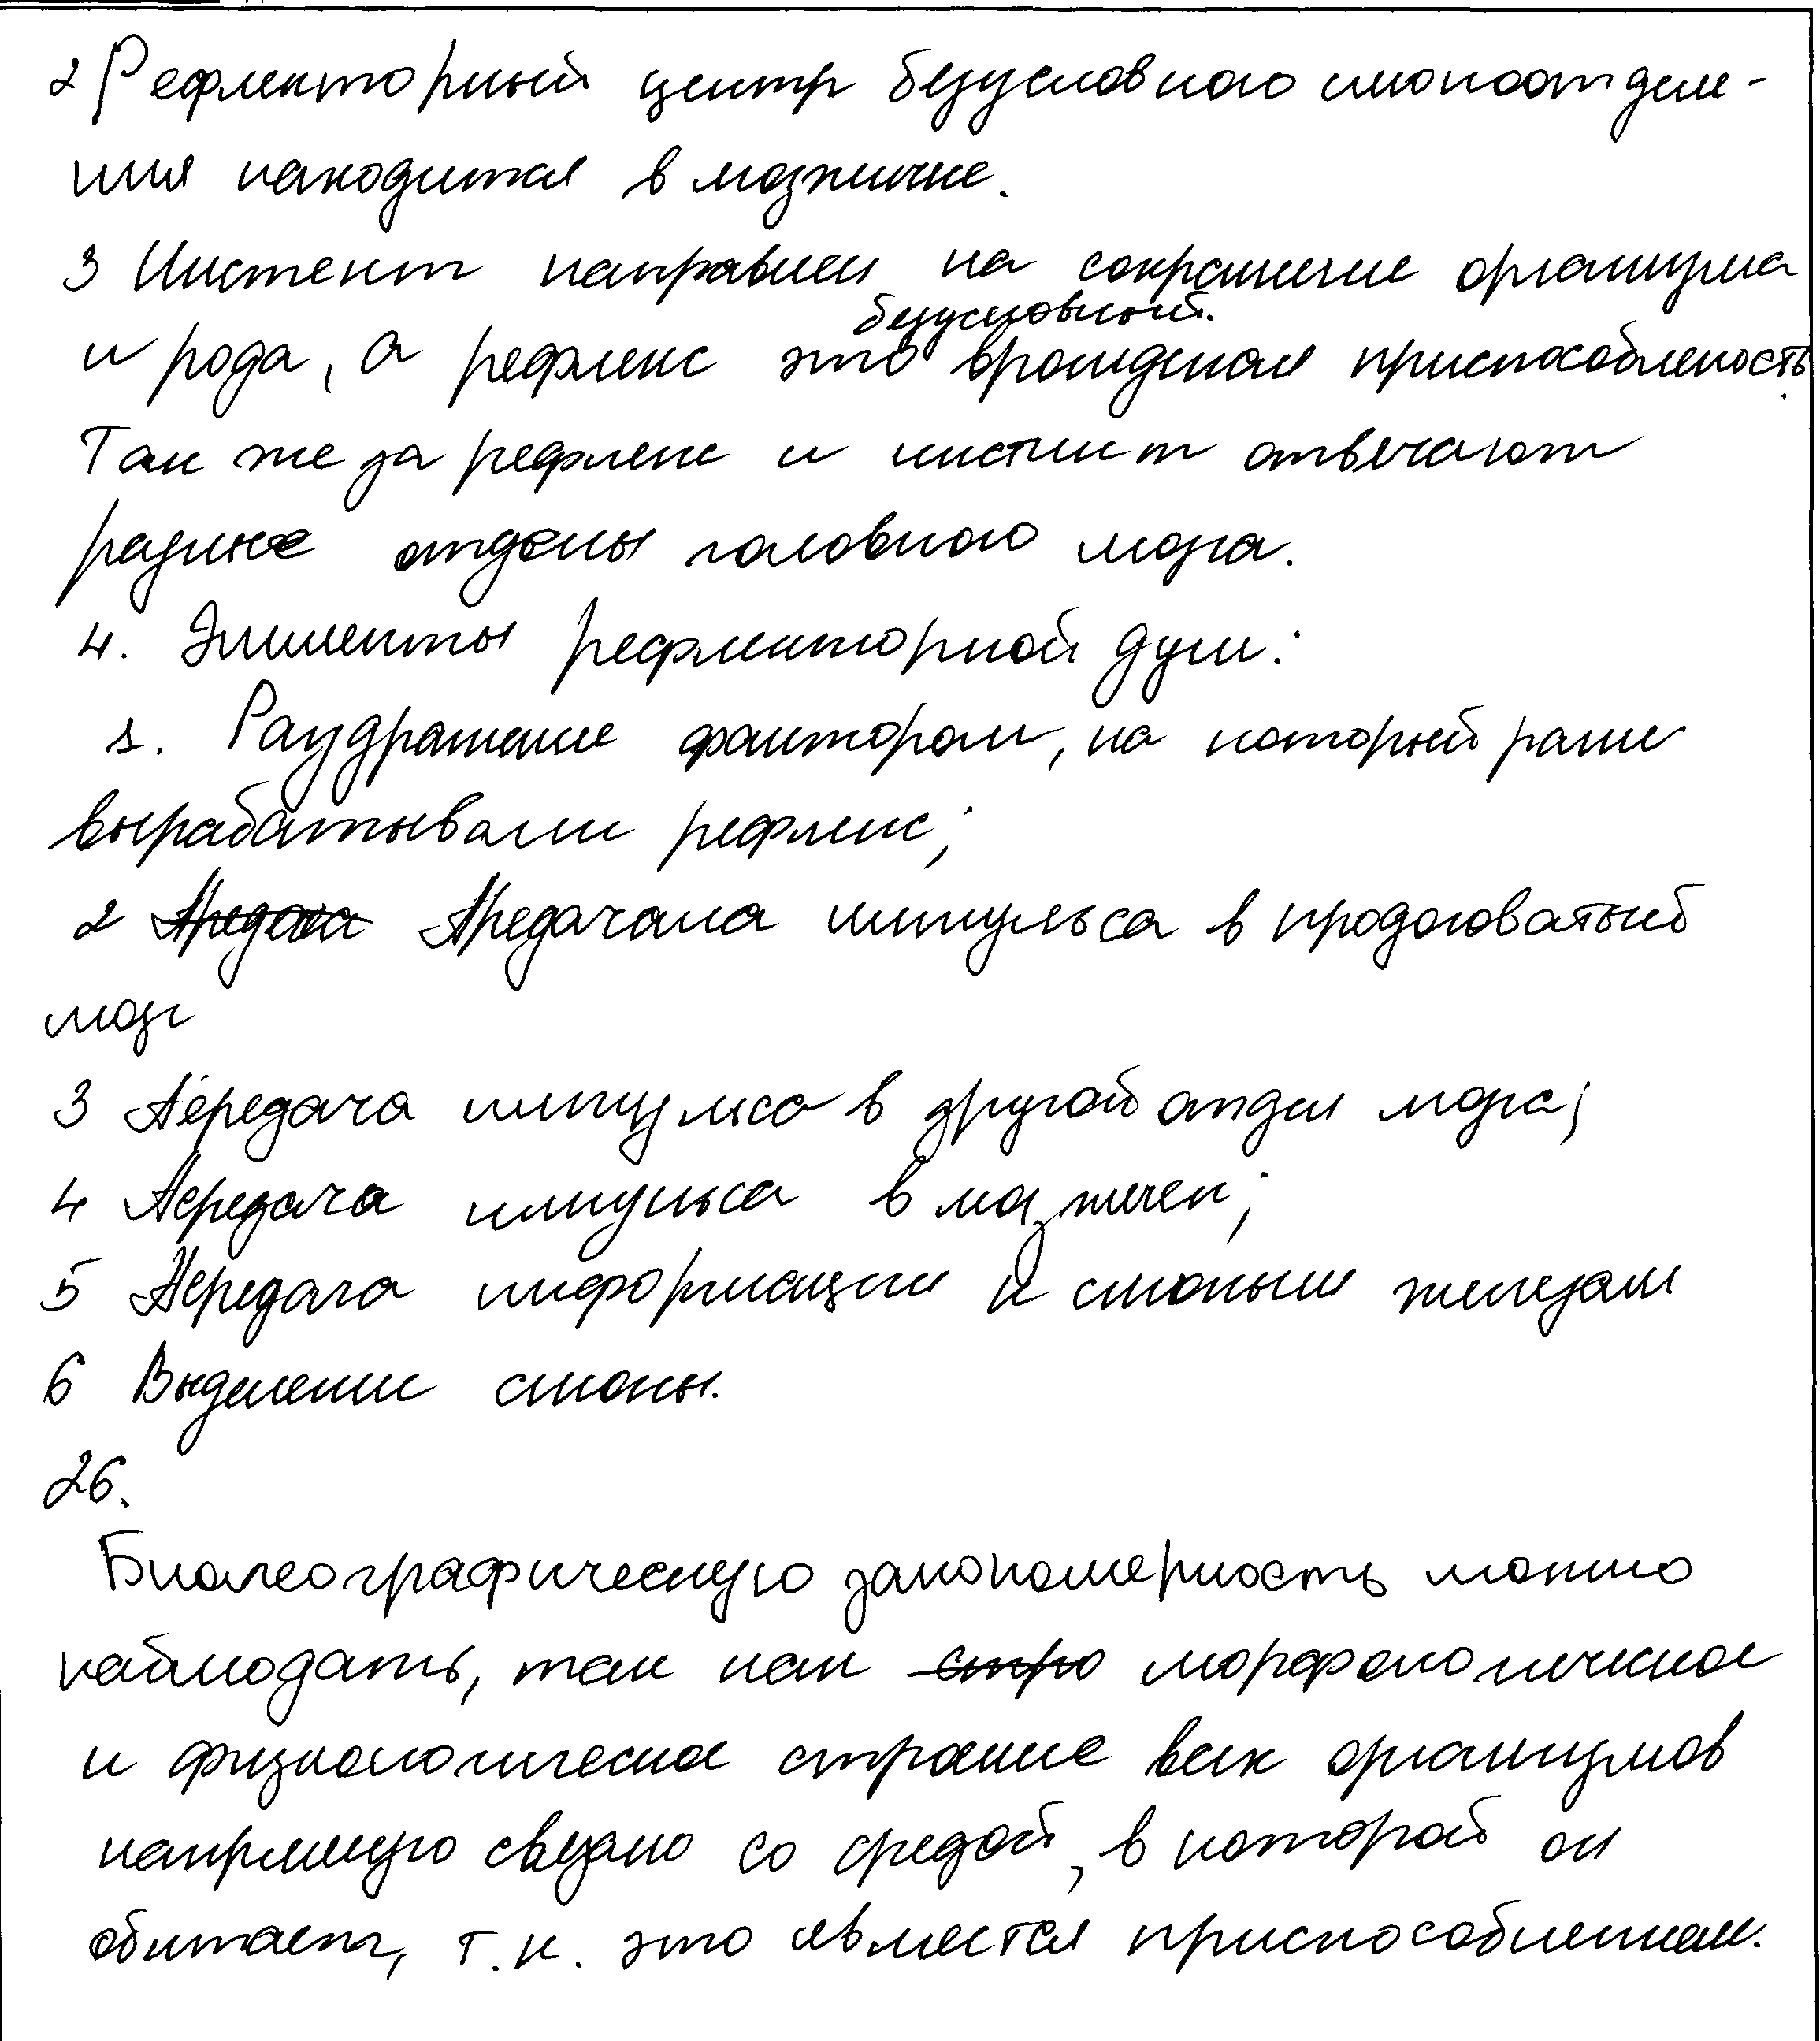 2 Рефлекторный центр безусловного слюноотделе-
ния находится в мозжичке.
3 Инстенкт направлен на сохранение организма
безусловный.
и рода, а рефлекс это врожденая приспособленость.
Так же за рефлекс и инстинкт отвечают
разные отделы головного мозга.
4. Элименты рефлекторной дуги:
1. Раздражение фактором, на который ранее
вырабатывали рефлекс;
2 Предача импульса в продоговатый
мозг
3 Передача импульса в другой отдел мозга;
4 Передача импульса в мозжечек;
5 Передача информации к слюным железам
6 Выделение слюны.
26.
Биогеографическую закономерность можно
наблюдать, так как морфологическое
и физиологическое строение всех организмов
напрямую связано со средой, в которой он
обитает, т.к. это является приспособлением.